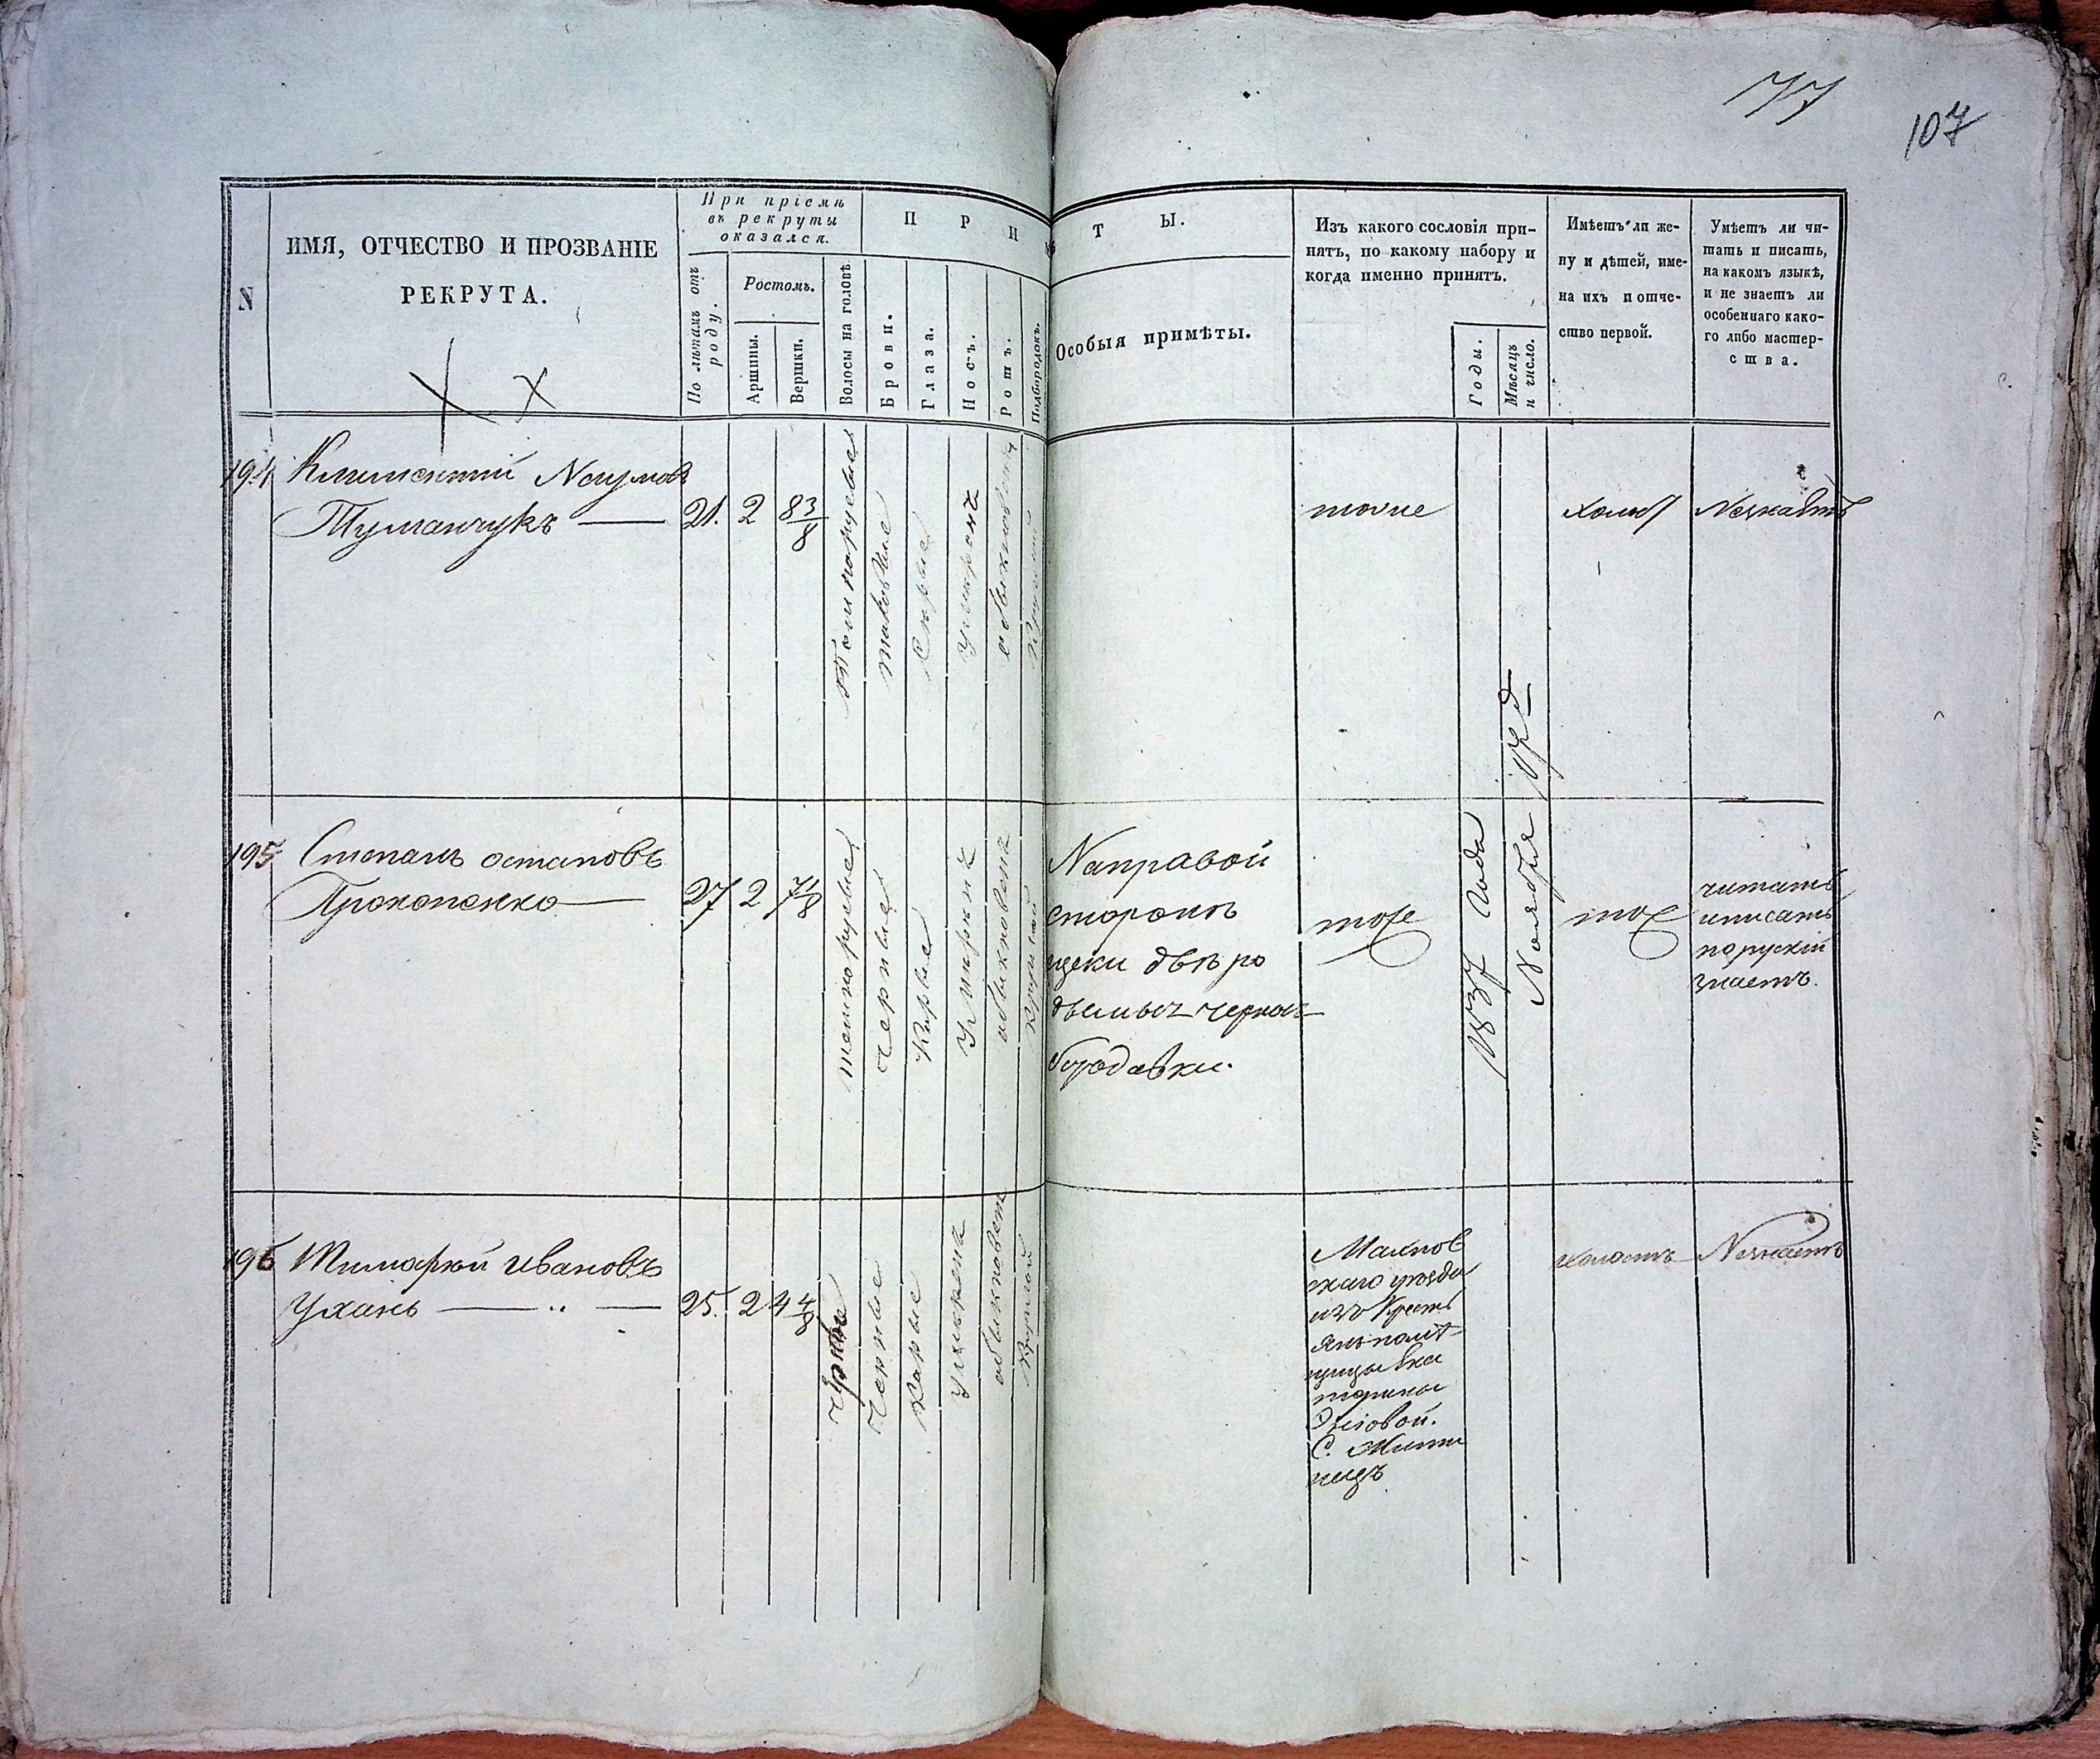 77
107
N
ИМЯ, ОТЧЕСТВО И ПРОЗВАНІЕ
РЕКРУТА.
При пріемѣ
въ рекруты
оказался.
По лѣтамъ отъ
роду.
Ростомъ.
Аршины.
Вершки.
П Р И М Ѣ Т Ы.
Волосы на головѣ.
Брови.
Глаза.
Носъ.
Ротъ.
Подбородокъ.
Особыя примѣты.
Изъ какого сословія при-
нятъ, по какому набору и
когда именно принятъ.
Годы.
Мѣсяцъ
и число.
Имѣетъ ли же-
ну и дѣтей, име-
на ихъ и отче-
ство первой.
Умѣетъ ли чи-
тать и писать,
на какомъ языкѣ,
и не знаетъ ли
особеннаго како-
го либо мастер-
ства.
194
Климентій Наумовъ
Туманчукъ
21.
2
8 3/8
Темнорусые
таковые
Серые
умеренъ
обыкновенъ
Круглый
тоже
холостъ
Незнаетъ
195
Степанъ остаповъ
Прокопенко
27
2
7 1/8
темнорусые
черные
Карые
умеренъ
обыкновенъ
круглый
Направой
стороне
щеки две ро
димыхъ черныхъ
бородавки.
тоже
1837 года
Ноября 17 д
тоже
читать
иписать
по рускій
знаетъ.
196
Тимофей Ивановъ
Ухань
25.
2
4 4/8
черные
Черные
карые
умеренъ
обыкновенъ
Круглой
скаго уезда
изъ Крестъ
янъ помѣ
щицы Ека
терины
С.
холостъ
Незнаетъ